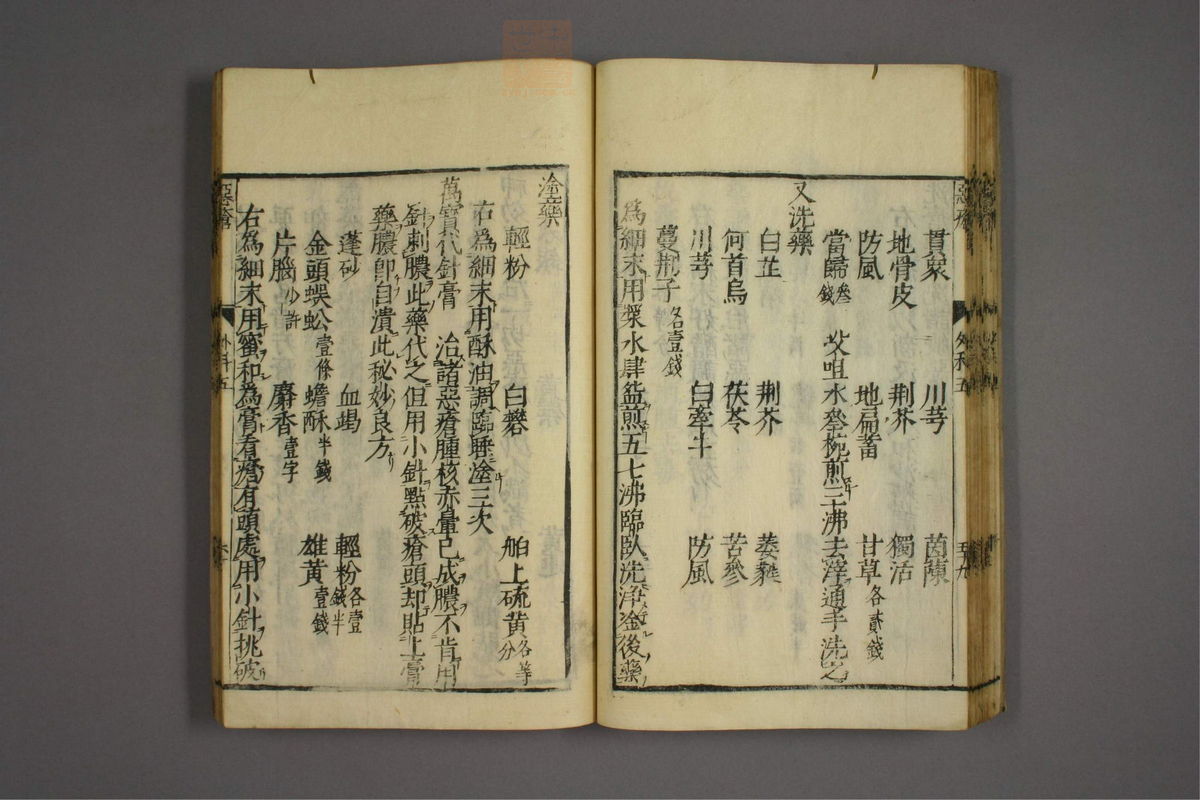 貫衆 川芎 茵蔯
地骨皮 荆芥 獨活
防風 地扁蓄 甘草各貳錢
當歸叁錢 㕮咀水叄椀煎三沸去滓通手洗之
又洗藥
白芷 荆芥 萎蕤
何首烏 茯苓 苦參
川芎 白牽牛 防風
蔓荆子各壹錢
爲細末用漿水肆盌煎五七沸臨臥洗淨塗後藥
塗藥
輕粉 白礬 舶上硫黄各等分
右爲細末用酥油調臨睡塗三次
萬寶代針膏 治諸惡瘡腫核赤暈已成膿不肯用
針刺膿此藥代之但用小針點破瘡頭却貼上膏
藥膿卽自潰此秘妙良方
蓬砂 血竭 輕粉各壹錢半
金頭蜈蚣壹條 蟾酥半錢 雄黄壹錢
片腦少許 麝香壹字
右爲細末用蜜和爲膏看瘡有頭處用小針挑破
惡瘡 外科五